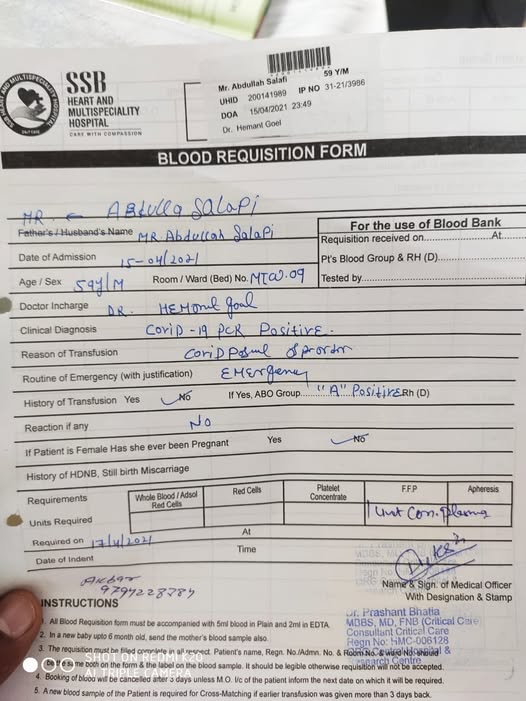 SSB
HEART AND
MULTISPECIALITY
HOSPITAL
CARE WITH COMPASSION
SSB HEART AND MULTISPECIALITY HOSPITAL
Mr. Abdullah Salafi 59 Y/M
UHID 200141989 IP NO 31-21/3986
DOA 15/04/2021 23:49
Dr. Hemant Goel
BLOOD REQUISITION FORM
MR. Abdulla Salapi
Father's / Husband's Name MR Abdullah Salapi
Date of Admission 15-04/2021
Age / Sex 59y/M Room / Ward (Bed) No. MICU.09
Doctor Incharge DR.
Clinical Diagnosis CoviD-19 PCR Positive.
Reason of Transfusion
Routine of Emergency (with justification) EMergency
History of Transfusion Yes No If Yes, ABO Group "A" Positive Rh (D)
Reaction if any No
If Patient is Female Has she ever been Pregnant Yes No
History of HDNB, Still birth Miscarriage
For the use of Blood Bank
Requisition received on At
Pt's Blood Group & RH (D)
Tested by
Requirements Whole Blood / Adsol Red Cells Red Cells Platelet Concentrate F.F.P Apheresis
Units Required 1 Unit Con. Plasma
Required on 17/4/2021 At
Date of Indent Time
Akbar
9794228787
Name & Sign. of Medical Officer
With Designation & Stamp
Dr. Prashant Bhatia
MBBS, MD, FNB (Critical Care)
Consultant Critical Care
Regn No: HMC-006128
Hospital &
Research Centre
INSTRUCTIONS
1. All Blood Requisition form must be accompanied with 5ml blood in Plain and 2ml in EDTA.
2. In a new baby upto 6 month old, send the mother's blood sample also.
3. The requisition form be filled correct & correct. Patient's name, Regn. No./Admn. No. & Room No. & ward No. should
be the both on the form & the label on the blood sample. It should be legible otherwise requisition will not be accepted.
4. Booking of blood will be cancelled after 3 days unless M.O. I/c of the patient inform the next date on which it will be required.
5. A new blood sample of the Patient is required for Cross-Matching if earlier transfusion was given more than 3 days back.
SHOT ON REDMI K20
AI TRIPLE CAMERA